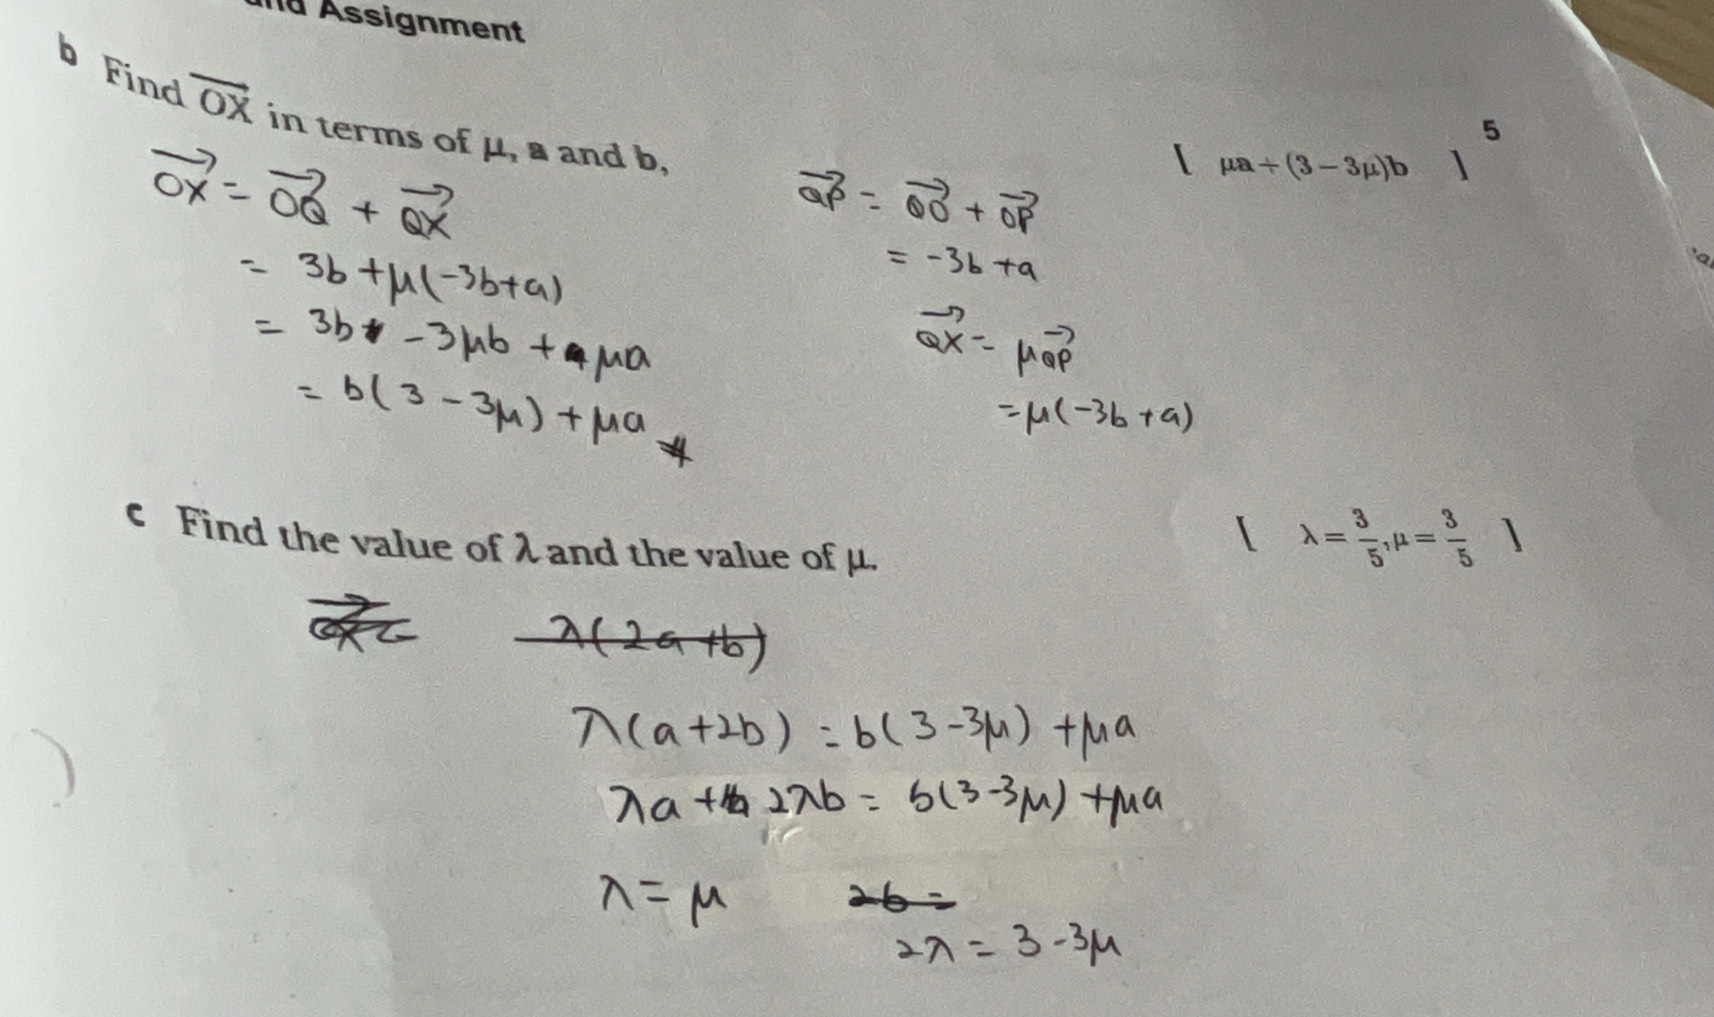 Assignment
5
b Find OX in terms of μ, a and b,
[ μa + (3 – 3μ)b ]
OX = OQ + QX
= 3b + μ(-3b+a)
= 3b - 3μb + μa
= b(3 - 3μ) + μa
QP = QO + OP
= -3b + a
QX = μQP
= μ(-3b + a)
c Find the value of λ and the value of μ.
[ λ = 3/5, μ = 3/5 ]
λ(2a+b)
λ(a+2b) = b(3-3μ) + μa
λa + 2λb = b(3-3μ) + μa
λ = μ
2b =
2λ = 3 - 3μ